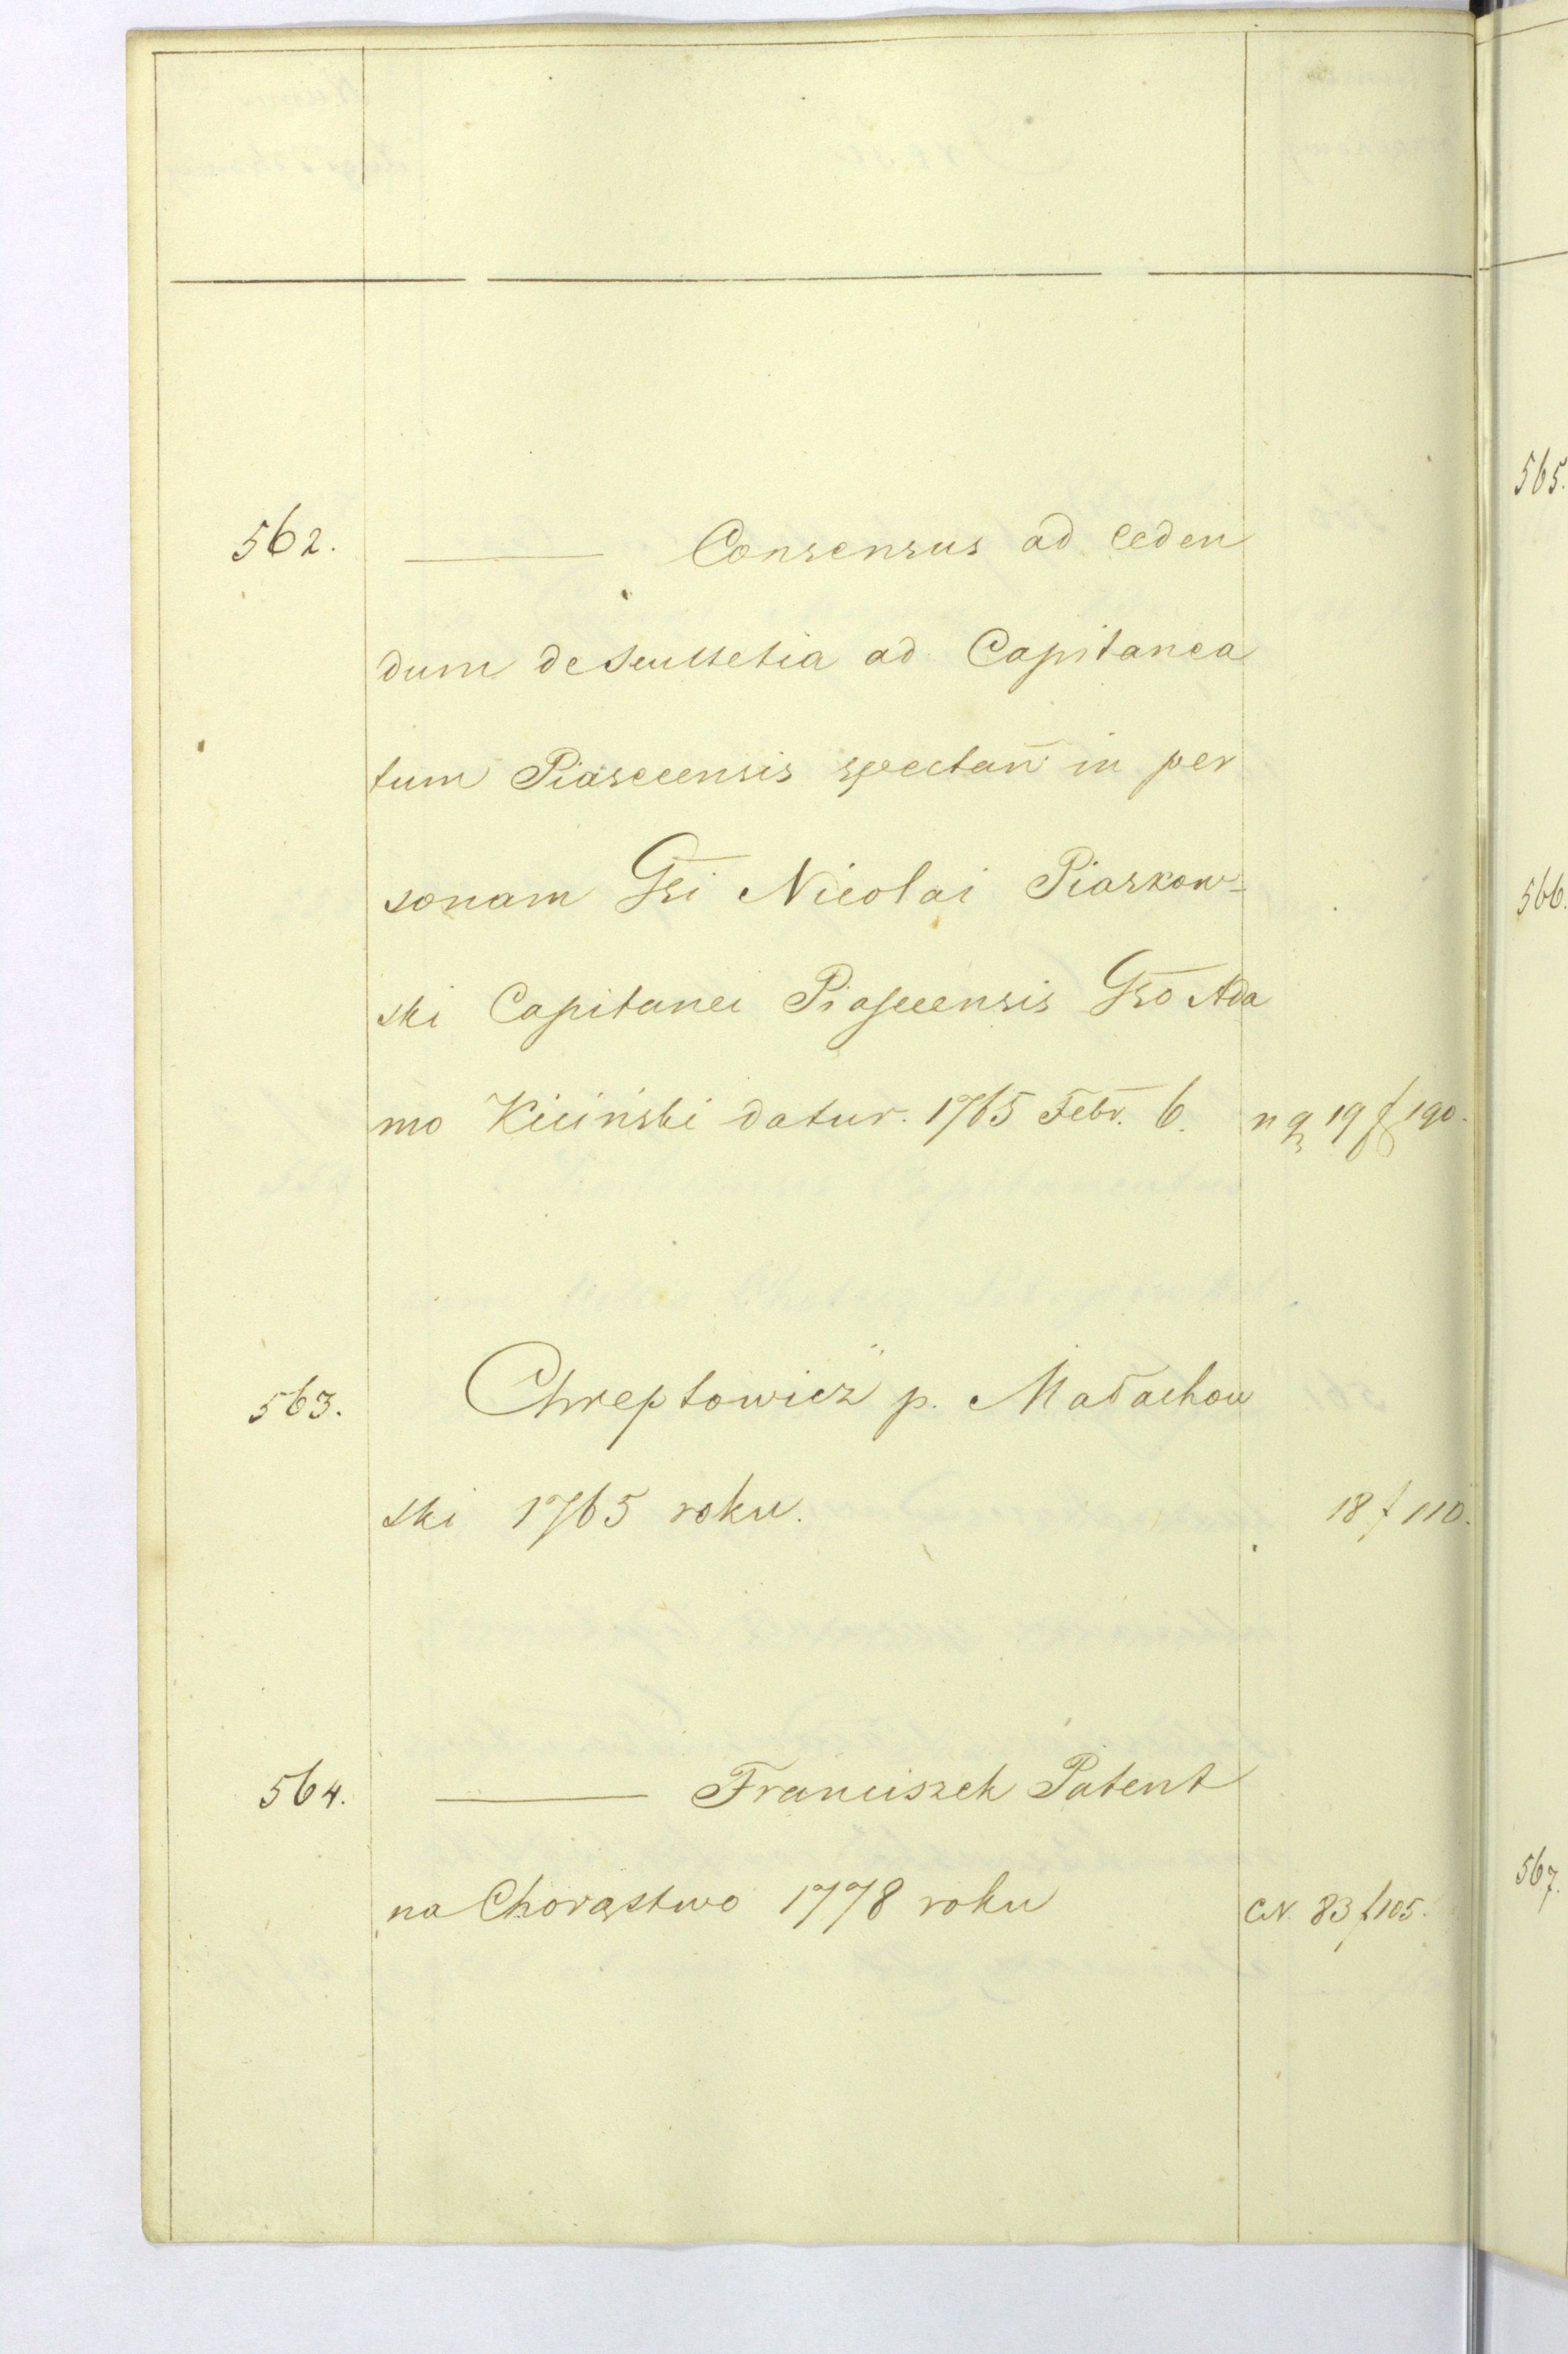 562. ——— Consensus ad ceden
dum de Scultetia ad Capitanea
tum Piasecensis spectan̄ in per
sonam Gsi Nicolai Piaskow-
ski Capitanei Piasecensis Gso Ada
mo Kiciński datur. 1765 Febr. 6. n q 19 f 190.
563. Chreptowicz p. Małachow
ski 1765 roku. 18 f 110.
564. ——— Franciszek Patent
na Chorąstwo 1778 roku CN. 83 f 105.
565.
566.
567.